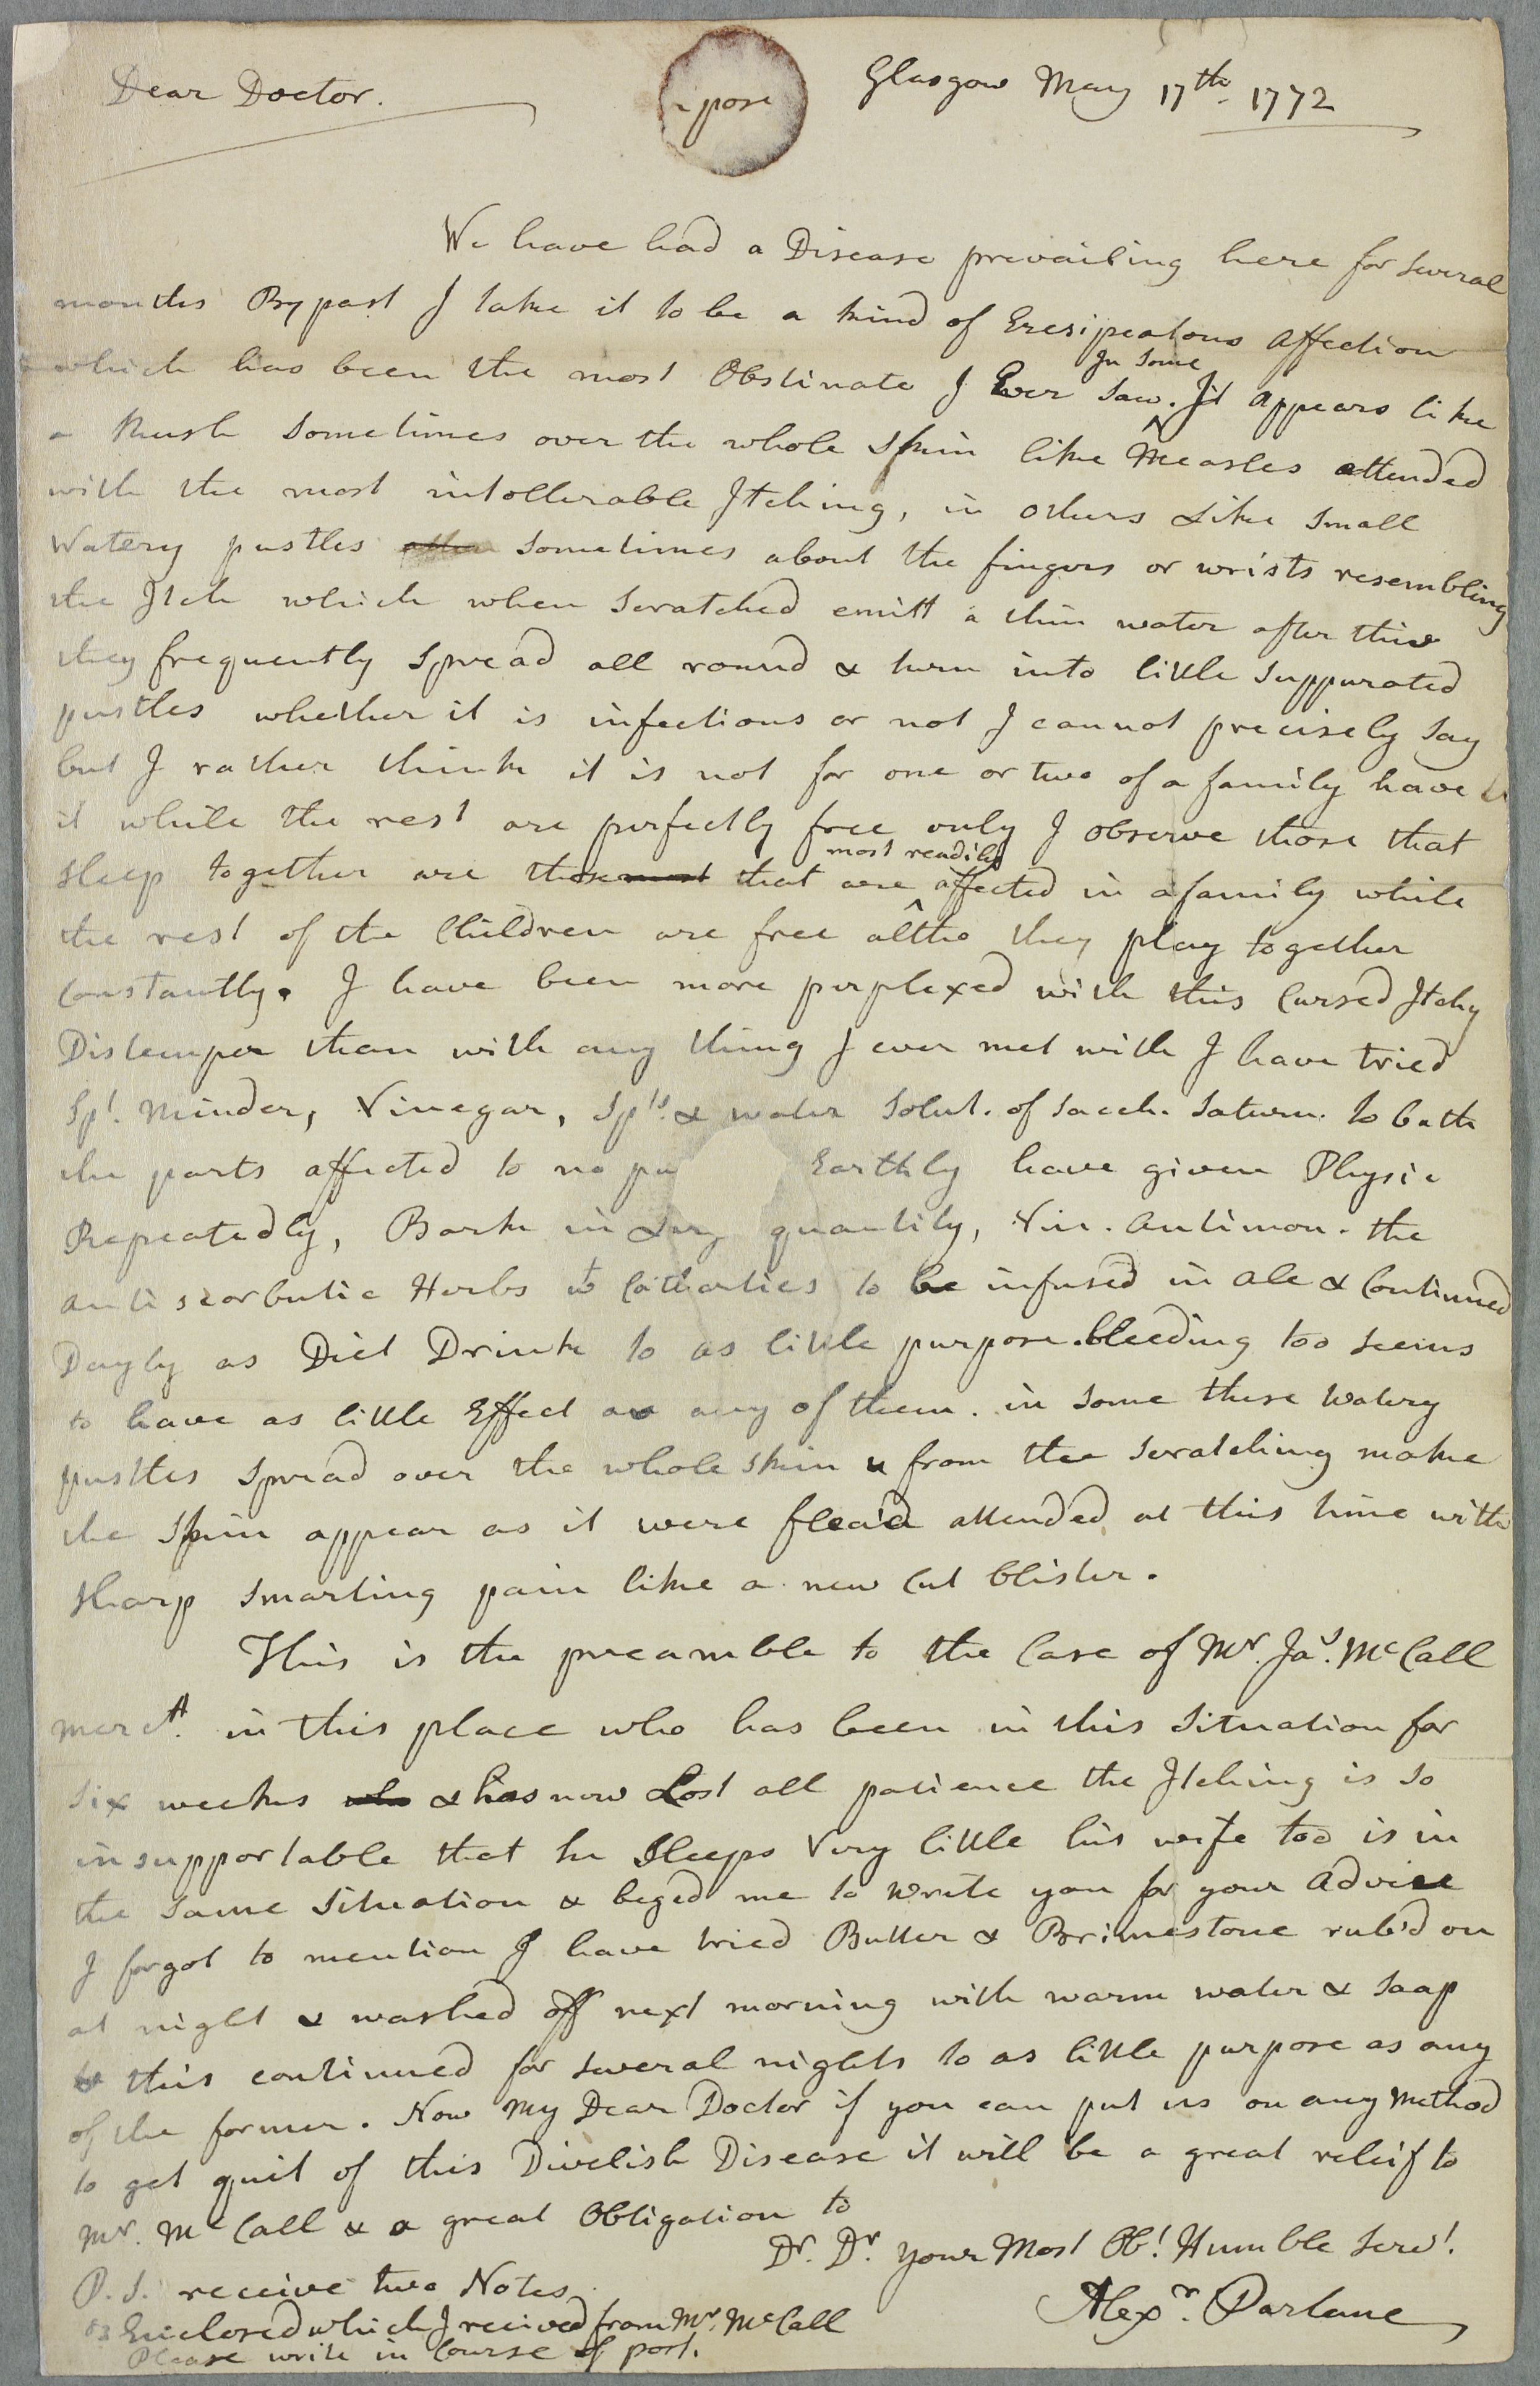 Dear Doctor.
pose
Glasgow May 17th. 1772
We have had a Disease prevailing here for several
months By past I take it to be a kind of Eresipealous affection
which has been the most Obstinate I Ever saw. In some It appears like
a Rush sometimes over the whole Skin like Measles attended
with the most intollerable Itching, in others Like small
Watery pustles sometimes about the fingers or wrists resembling
the Itch which when scratched emitt a thin water after this
they frequently spread all round & turn into little suppurated
pustles whether it is infectious or not I cannot precisely say
but I rather think it is not for one or two of a family have
it while the rest are perfectly free only I observe those that
sleep together are those most that are most readily affected in a family while
the rest of the Children are free altho they play together
Constantly. I have been more perplexed with this Cursed Itchy
Distemper than with any thing I ever met with I have tried
Spt. Minder, Vinegar, Spts. & water Solut. of Sacch. Saturn. to bath
the parts affected to no pu Earthly have given Physic
Repeatedly, Bark in Larg quantity, Vin. Antimon. the
antiscorbutic Herbs wt Cathartics to be infused in ale & Continued
Dayly as Diet Drink to as little purpose. bleeding too seems
to have as little Effect as any of them. in some these Watery
pustles spread over the whole skin & from the scratching make
the Skin appear as it were flea'd attended at this time with
sharp smarting pain like a new Cut blister.
This is the preamble to the Case of Mr. Jas. McCall
mercht. in this place who has been in this Situation for
six weeks who & has now Lost all patience the Itching is so
insupportable that he Sleeps Very little his wife too is in
the same Situation & beged me to write you for your Advice
I forgot to mention I have tried Butter & Brimestone rub'd on
at night & washed off next morning with warm water & soap
& this continued for several nights to as little purpose as any
of the former. Now My Dear Doctor if you can put us on any Method
to get quit of this Divelish Disease it will be a great releif to
Mr. McCall & a great Obligation to
Dr. Dr. your Most Obt. Humble Servt.
Alexr. Parlane
P.S. receive two Notes
Enclosed which I received from Mr. McCall
Please write in Course of post.